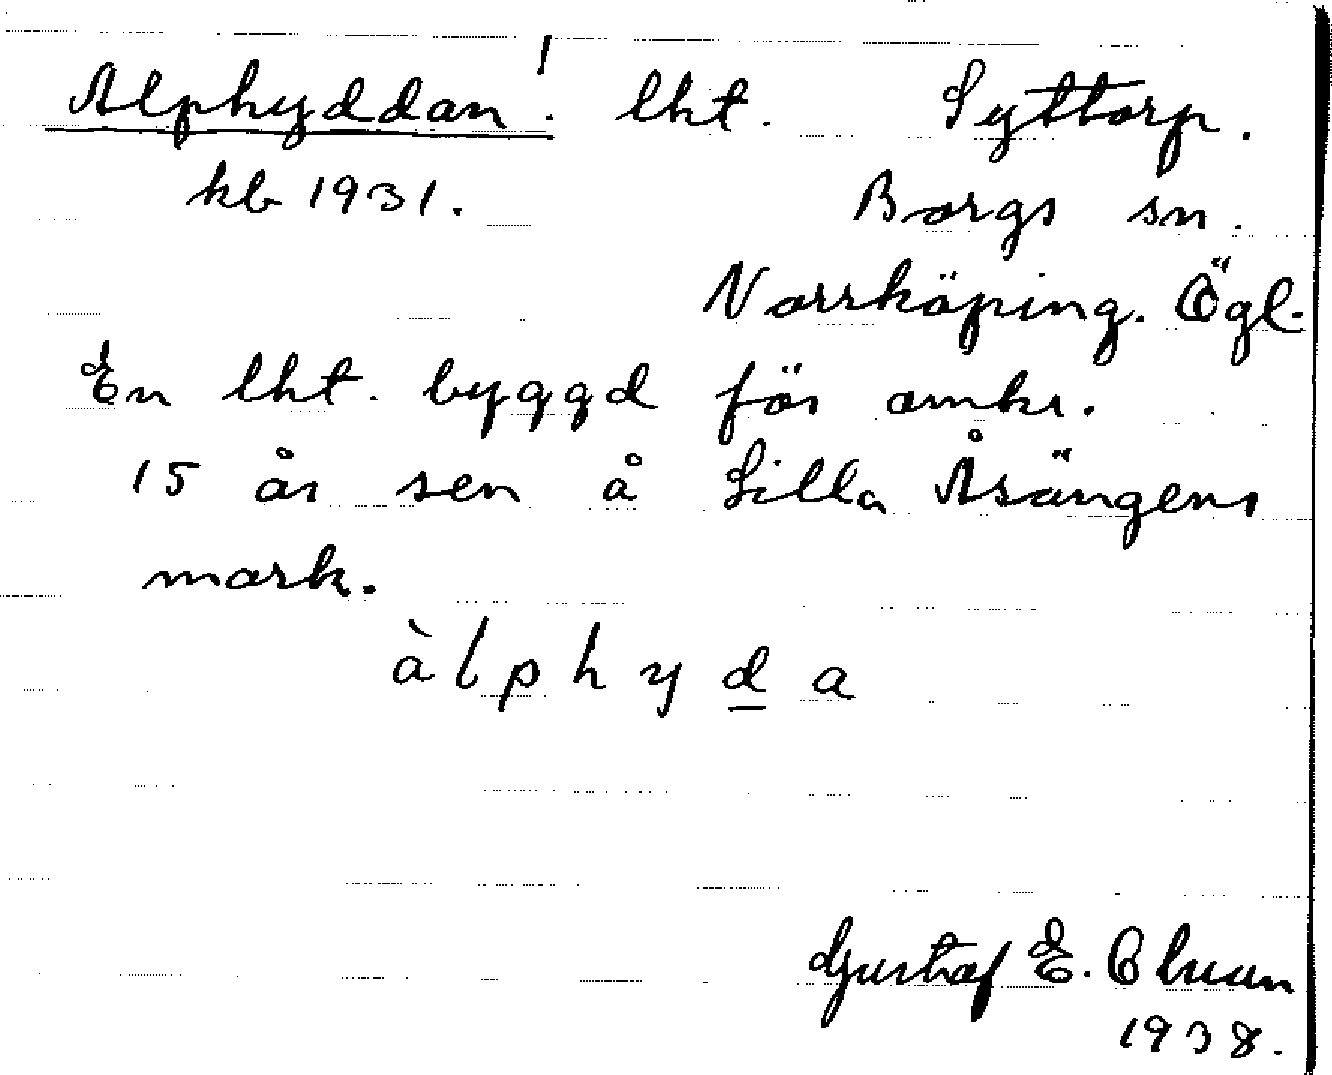 Alphyddan! lht. Syttorp.
kb 1931. Borgs sn.
Norrköping. Ögl.
En lht. byggd för omkr.
15 år sen å Lilla Åsängens
mark.
àlphyda
Gustaf E. Olsson
1938.